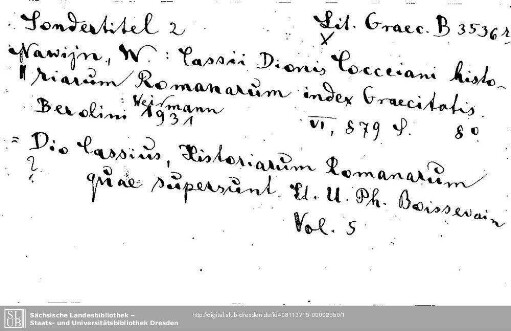 Sondertitel 2
Lit. Graec. B 3536 r
x
Nawijn, W : Cassii Dionis Cocceiani histo-
riarum Romanarum index Graecitatis.
Berolini : Weidmann 1931
VI, 879 S. 8°
= Dio Cassius, Historiarum Romanarum
?
quae supersunt. Ed. U. Ph. Boissevain
Vol. 5
SLUB
Sächsische Landesbibliothek –
Staats- und Universitätsbibliothek Dresden